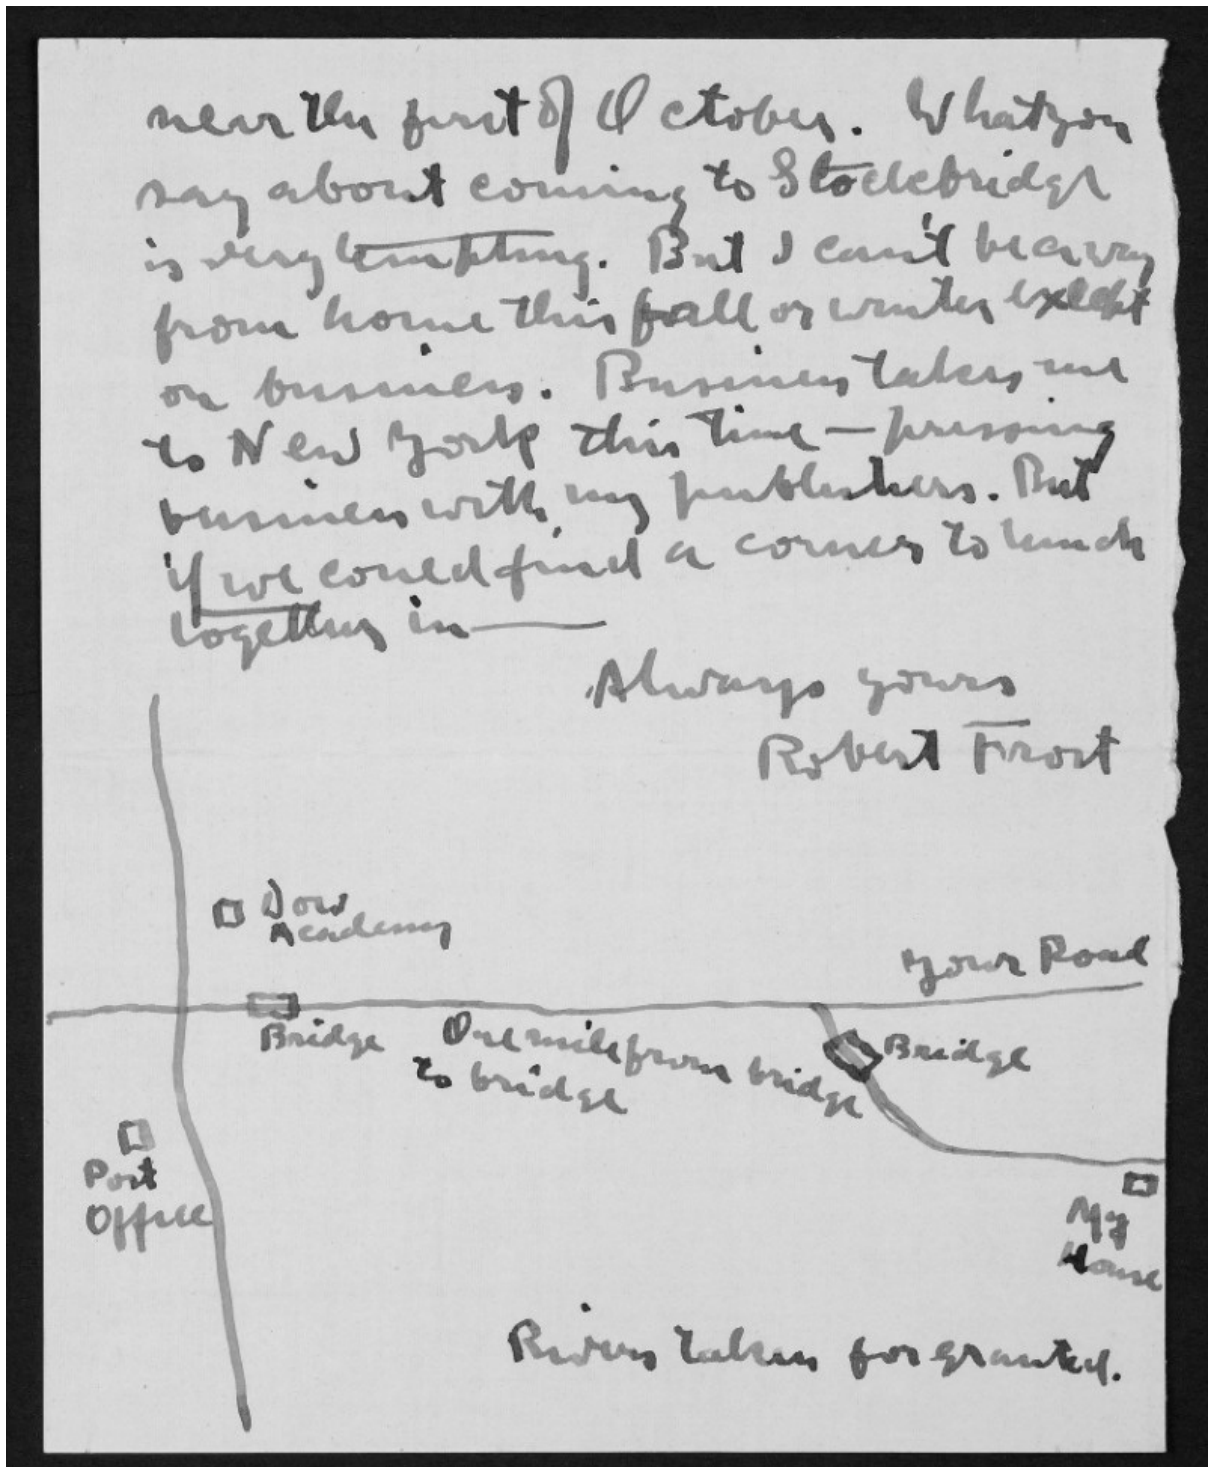 near the first of October. What you
say about coming to Stockbridge
is very tempting. But I can't be away
from home this fall or winter except
on business. Business takes me
to New York this time — pressing
business with my publishers. But
if we could find a corner to lunch
together in —
Always yours
Robert Frost
Dow
Academy
Your Road
Bridge
One mile from bridge
to bridge
Bridge
Post
Office
My
House
Rivers taken for granted.